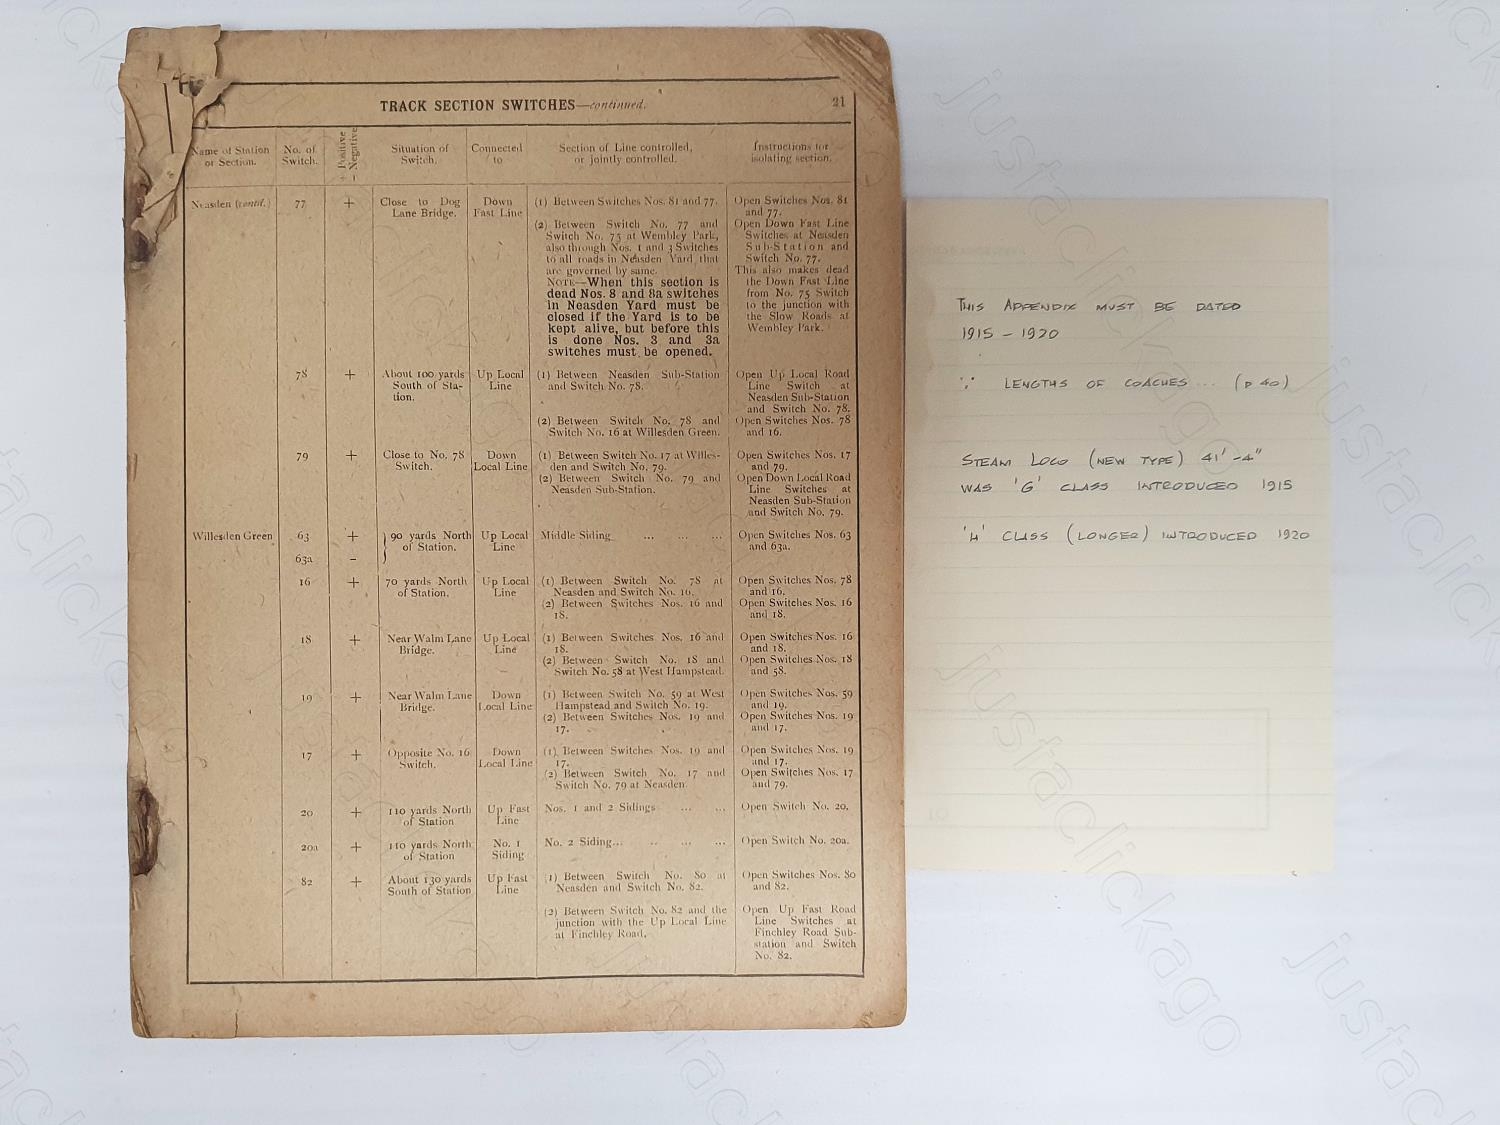 TRACK SECTION SWITCHES—continued.
21
Name of Station or Section.
No. of Switch.
+ Positive
- Negative
Situation of Switch.
Connected to
Section of Line controlled, or jointly controlled.
Instructions for isolating section.
Neasden (contd.)
77
+
Close to Dog
Lane Bridge.
Down
Fast Line
(1) Between Switches Nos. 81 and 77.
Open Switches Nos. 81
and 77.
(2) Between Switch No. 77 and
Switch No. 75 at Wembley Park,
also through Nos. 1 and 3 Switches
to all roads in Neasden Yard that
are governed by same.
NOTE—When this section is
dead Nos. 8 and 8a switches
in Neasden Yard must be
closed if the Yard is to be
kept alive, but before this
is done Nos. 3 and 3a
switches must be opened.
Open Down Fast Line
Switches at Neasden
Sub-Station and
Switch No. 77.
This also makes dead
the Down Fast Line
from No. 75 Switch
to the junction with
the Slow Roads at
Wembley Park.
78
+
About 100 yards
South of Sta-
tion.
Up Local
Line
(1) Between Neasden Sub-Station
and Switch No. 78.
Open Up Local Road
Line Switch at
Neasden Sub-Station
and Switch No. 78.
(2) Between Switch No. 78 and
Switch No. 16 at Willesden Green.
Open Switches Nos. 78
and 16.
79
+
Close to No. 78
Switch.
Down
Local Line
(1) Between Switch No. 17 at Willes-
den and Switch No. 79.
Open Switches Nos. 17
and 79.
(2) Between Switch No. 79 and
Neasden Sub-Station.
Open Down Local Road
Line Switches at
Neasden Sub-Station
and Switch No. 79.
Willesden Green
63
+
63a
-
90 yards North
of Station.
Up Local
Line
Middle Siding ... ... ...
Open Switches Nos. 63
and 63a.
16
+
70 yards North
of Station.
Up Local
Line
(1) Between Switch No. 78 at
Neasden and Switch No. 16.
Open Switches Nos. 78
and 16.
(2) Between Switches Nos. 16 and
18.
Open Switches Nos. 16
and 18.
18
+
Near Walm Lane
Bridge.
Up Local
Line
(1) Between Switches Nos. 16 and
18.
Open Switches Nos. 16
and 18.
(2) Between Switch No. 18 and
Switch No. 58 at West Hampstead.
Open Switches Nos. 18
and 58.
19
+
Near Walm Lane
Bridge.
Down
Local Line
(1) Between Switch No. 59 at West
Hampstead and Switch No. 19.
Open Switches Nos. 59
and 19.
(2) Between Switches Nos. 19 and
17.
Open Switches Nos. 19
and 17.
17
+
Opposite No. 16
Switch.
Down
Local Line
(1) Between Switches Nos. 19 and
17.
Open Switches Nos. 19
and 17.
(2) Between Switch No. 17 and
Switch No. 79 at Neasden
Open Switches Nos. 17
and 79.
20
+
110 yards North
of Station
Up Fast
Line
Nos. 1 and 2 Sidings ... ...
Open Switch No. 20.
20a
+
110 yards North
of Station
No. 1
Siding
No. 2 Siding... ... ... ...
Open Switch No. 20a.
82
+
About 130 yards
South of Station
Up Fast
Line
(1) Between Switch No. 80 at
Neasden and Switch No. 82.
Open Switches Nos. 80
and 82.
(2) Between Switch No. 82 and the
junction with the Up Local Line
at Finchley Road.
Open Up Fast Road
Line Switches at
Finchley Road Sub-
station and Switch
No. 82.
THIS APPENDIX MUST BE DATED
1915 - 1920
∵ LENGTHS OF COACHES ... (P 40)
STEAM LOCO (NEW TYPE) 41'-4"
WAS 'G' CLASS INTRODUCED 1915
'H' CLASS (LONGER) INTRODUCED 1920
justaclickago